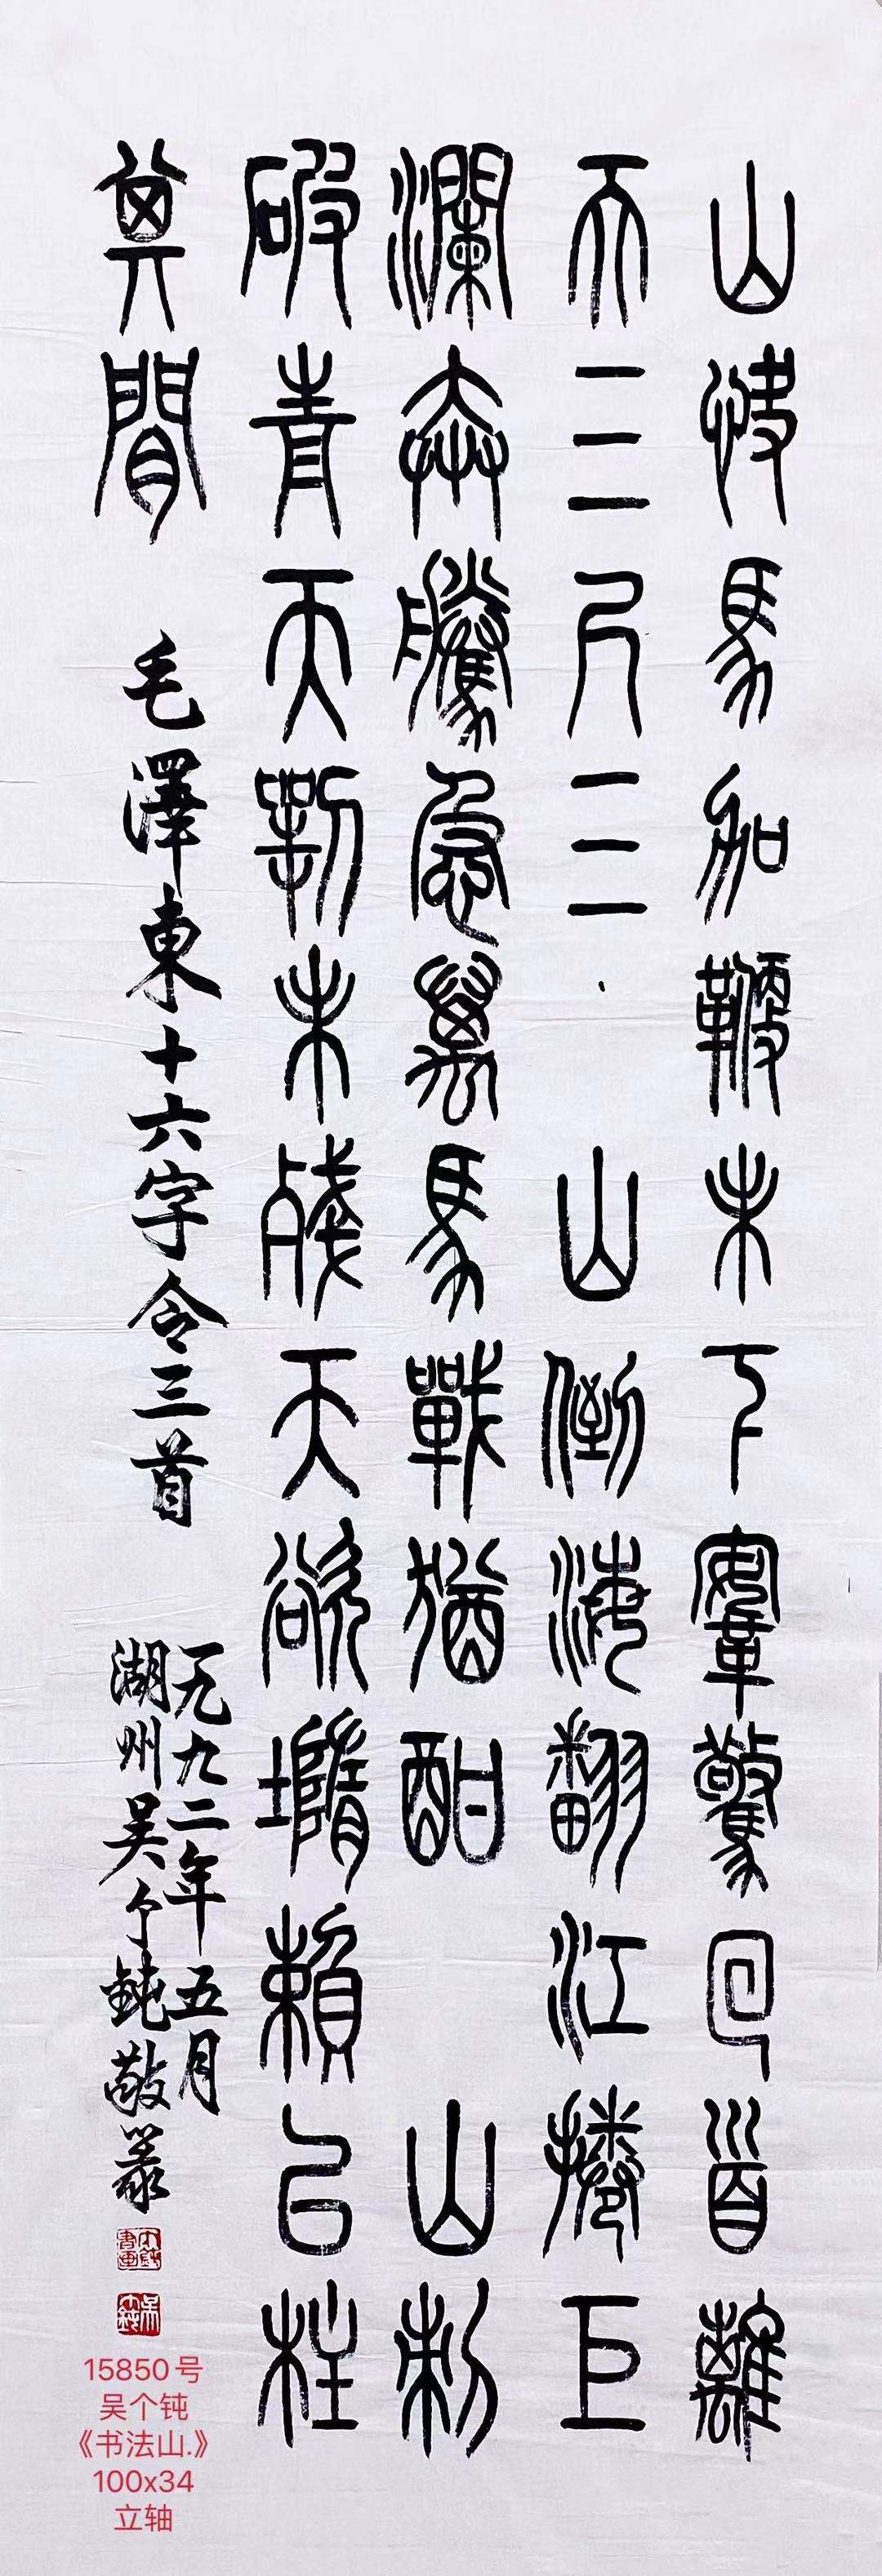 山快馬加鞭未下鞌驚回首離
天三尺三 山倒海翻江捲巨
瀾奔騰急萬馬戰猶酣 山刺
破青天鍔未殘天欲墮賴以柱
其間 毛澤東十六字令三首
一九九二年五月
湖州吴个鈍敬篆
15850号
吴个钝
《书法山.》
100x34
立轴